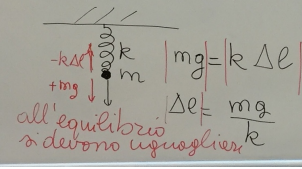 -kΔl
k
m
+mg
|mg|=|k Δl|
Δl = mg/k
all'equilibrio
si devono uguagliare